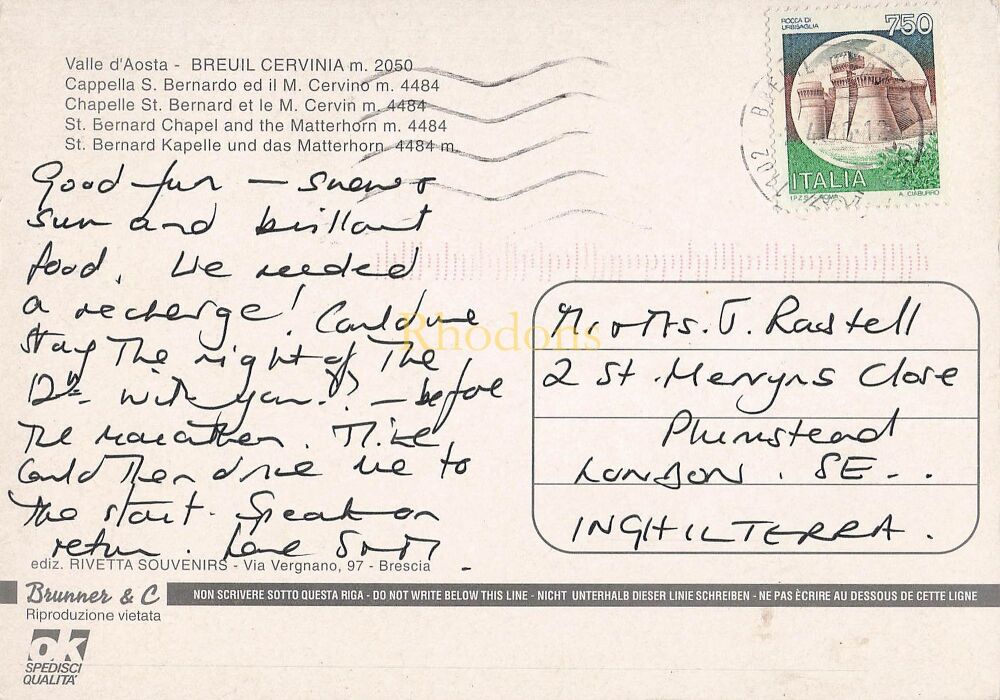 Valle d'Aosta - BREUIL CERVINIA m. 2050
Cappella S. Bernardo ed il M. Cervino m. 4484
Chapelle St. Bernard et le M. Cervin m. 4484
St. Bernard Chapel and the Matterhorn m. 4484
St. Bernard Kapelle und das Matterhorn 4484 m.
Good fun —
sun and brillant
food. We needed
a recharge! Could we
stay the night of the
12th with you?? — before
the marathon. Mike
could then drive me to
the start. Speak on
return. Love
ediz. RIVETTA SOUVENIRS - Via Vergnano, 97 - Brescia
Brunner & C
Riproduzione vietata
ok
SPEDISCI
QUALITA'
NON SCRIVERE SOTTO QUESTA RIGA - DO NOT WRITE BELOW THIS LINE - NICHT UNTERHALB DIESER LINIE SCHREIBEN - NE PAS ÈCRIRE AU DESSOUS DE CETTE LIGNE
ROCCA DI
URBISAGLIA
750
ITALIA
I.P.Z.S. ROMA
A. CIABURRO
Rhodons
Mr & Mrs. J. Rastell
2 St. Merryns Close
Plumstead
LONDON. SE..
INGHILTERRA.